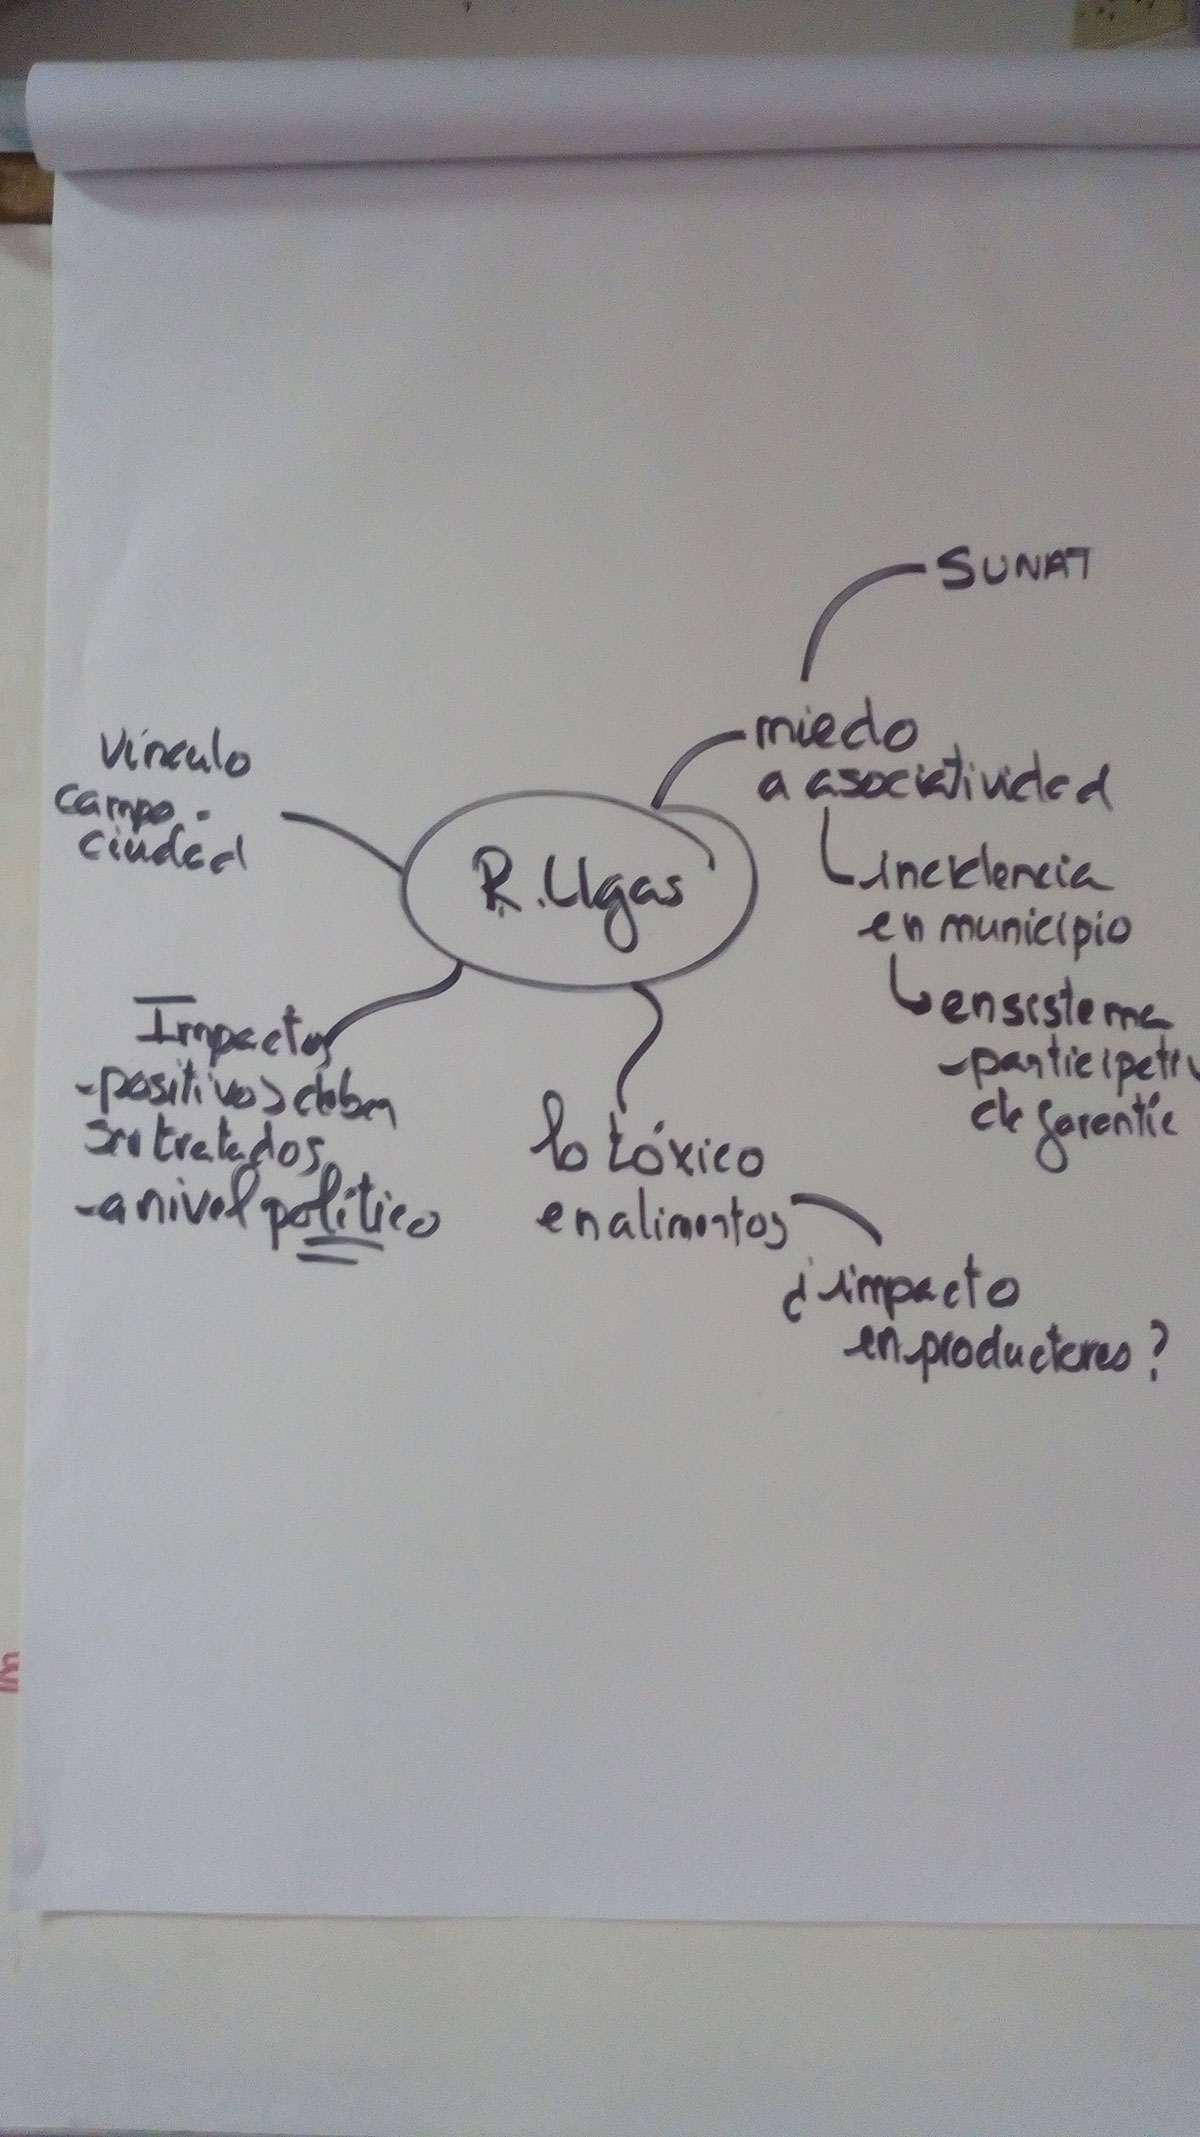 SUNAT
miedo
a asociatividad
incidencia
en municipio
en sistema
-participativ
de garantía
R. Ugas
vínculo
campo-
ciudad
Impactos
-positivos deben
ser tratados
-a nivel político
lo tóxico
en alimentos
¿impacto
en productores?